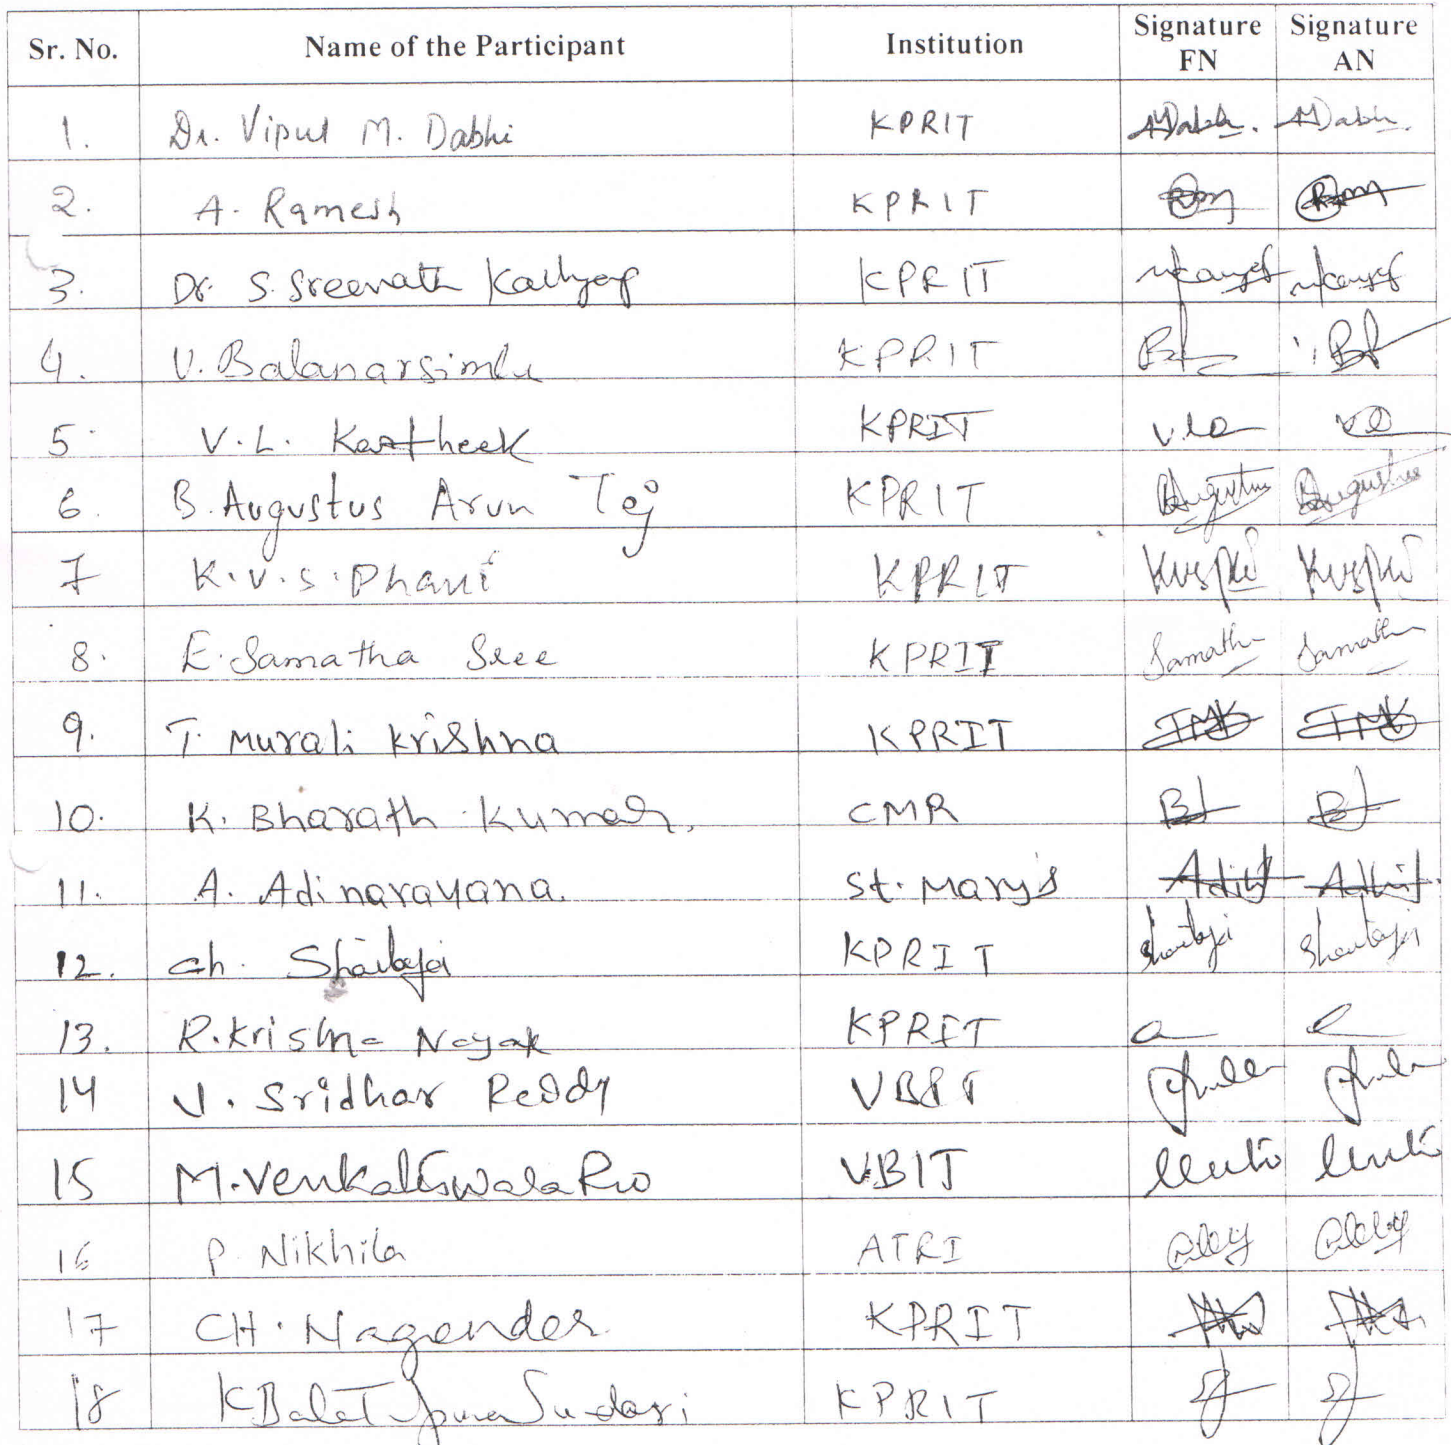 Sr. No. Name of the Participant Institution Signature FN Signature AN
1. Dr. Vipul M. Dabhi KPRIT
2. A. Ramesh KPRIT
3. Dr. S. Sreenath Kashyap KPRIT
4. V. Balanarsimlu KPRIT
5. V.L. Kartheek KPRIT
6. B. Augustus Arun Tej KPRIT Augustus Augustus
7 K.V.S. Phani KPRIT
8. E. Samatha Sree KPRIT Samatha Samatha
9. T. Murali Krishna KPRIT TMK TMK
10. K. Bharath Kumar. CMR
11. A. Adinarayana. St. Mary's
12. Ch. Shailaja KPRIT Shailaja Shailaja
13. R. Krishna Nayak KPRIT
14 V. Sridhar Reddy VBIT
15 M. Venkateswara Rao VBIT
16 P. Nikhila ATRI
17 CH. Nagender KPRIT
18 K Bala Sundari KPRIT